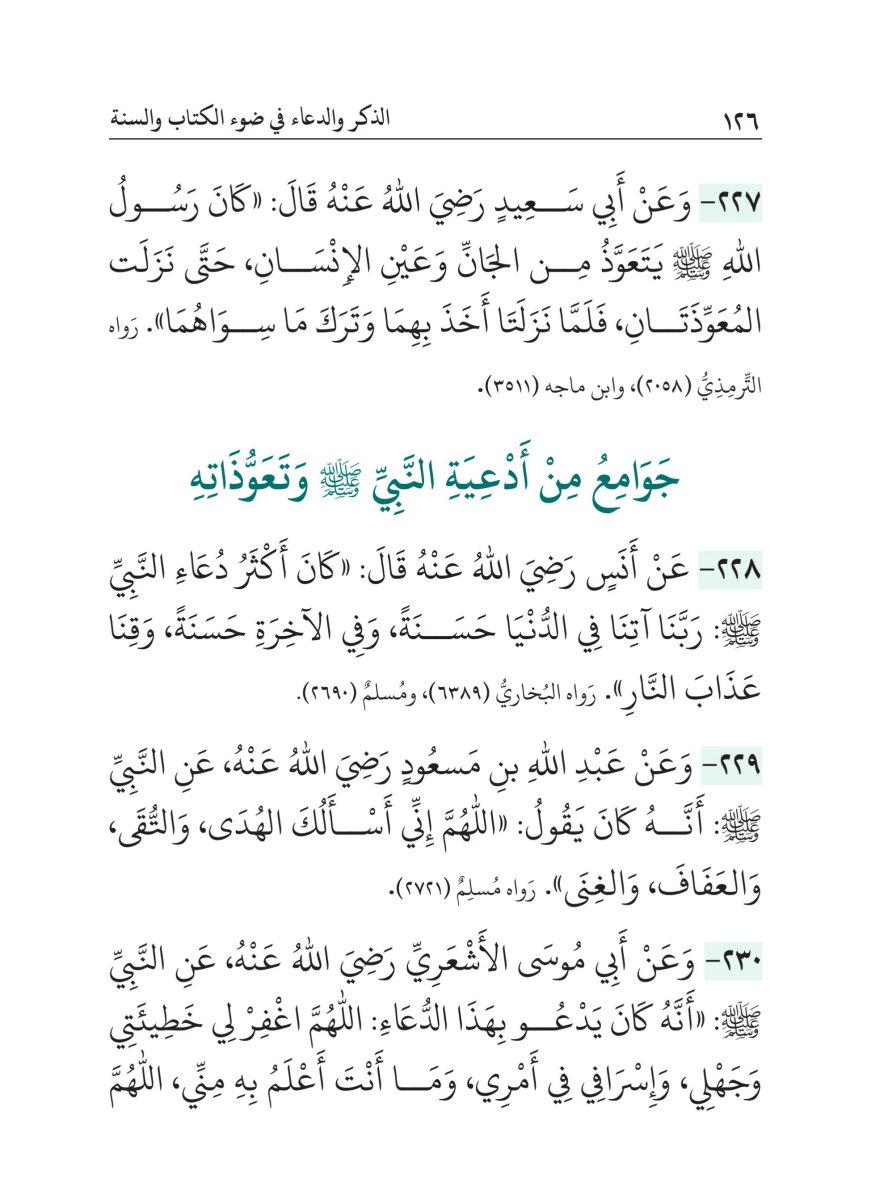 ١٢٦ الذكر والدعاء في ضوء الكتاب والسنة
٢٢٧- وَعَنْ أَبِي سَـــعِيدٍ رَضِيَ اللهُ عَنْهُ قَالَ: «كَانَ رَسُـــولُ
اللهِ ﷺ يَتَعَوَّذُ مِـــن الجَانِّ وَعَيْنِ الإِنْسَـــانِ، حَتَّى نَزَلَت
المُعَوِّذَتَـــانِ، فَلَمَّا نَزَلَتَا أَخَذَ بِهِمَا وَتَرَكَ مَا سِـــوَاهُمَا». رَواه
التِّرمِذِيُّ (٢٠٥٨)، وابن ماجه (٣٥١١).
جَوَامِعُ مِنْ أَدْعِيَةِ النَّبِيِّ ﷺ وَتَعَوُّذَاتِهِ
٢٢٨- عَنْ أَنَسٍ رَضِيَ اللهُ عَنْهُ قَالَ: «كَانَ أَكْثَرُ دُعَاءِ النَّبِيِّ
ﷺ: رَبَّنَا آتِنَا فِي الدُّنْيَا حَسَـــنَةً، وَفِي الآخِرَةِ حَسَنَةً، وَقِنَا
عَذَابَ النَّارِ». رَواه البُخاريُّ (٦٣٨٩)، ومُسلمٌ (٢٦٩٠).
٢٢٩- وَعَنْ عَبْدِ اللهِ بنِ مَسعُودٍ رَضِيَ اللهُ عَنْهُ، عَنِ النَّبِيِّ
ﷺ: أَنَّـــهُ كَانَ يَقُولُ: «اللَّهُمَّ إِنِّي أَسْـــأَلُكَ الهُدَى، وَالتُّقَى،
وَالعَفَافَ، وَالغِنَى». رَواه مُسلِمٌ (٢٧٢١).
٢٣٠- وَعَنْ أَبِي مُوسَى الأَشْعَرِيِّ رَضِيَ اللهُ عَنْهُ، عَنِ النَّبِيِّ
ﷺ: «أَنَّهُ كَانَ يَدْعُـــو بِهَذَا الدُّعَاءِ: اللَّهُمَّ اغْفِرْ لِي خَطِيئَتِي
وَجَهْلِي، وَإِسْرَافِي فِي أَمْرِي، وَمَـــا أَنْتَ أَعْلَمُ بِهِ مِنِّي، اللَّهُمَّ